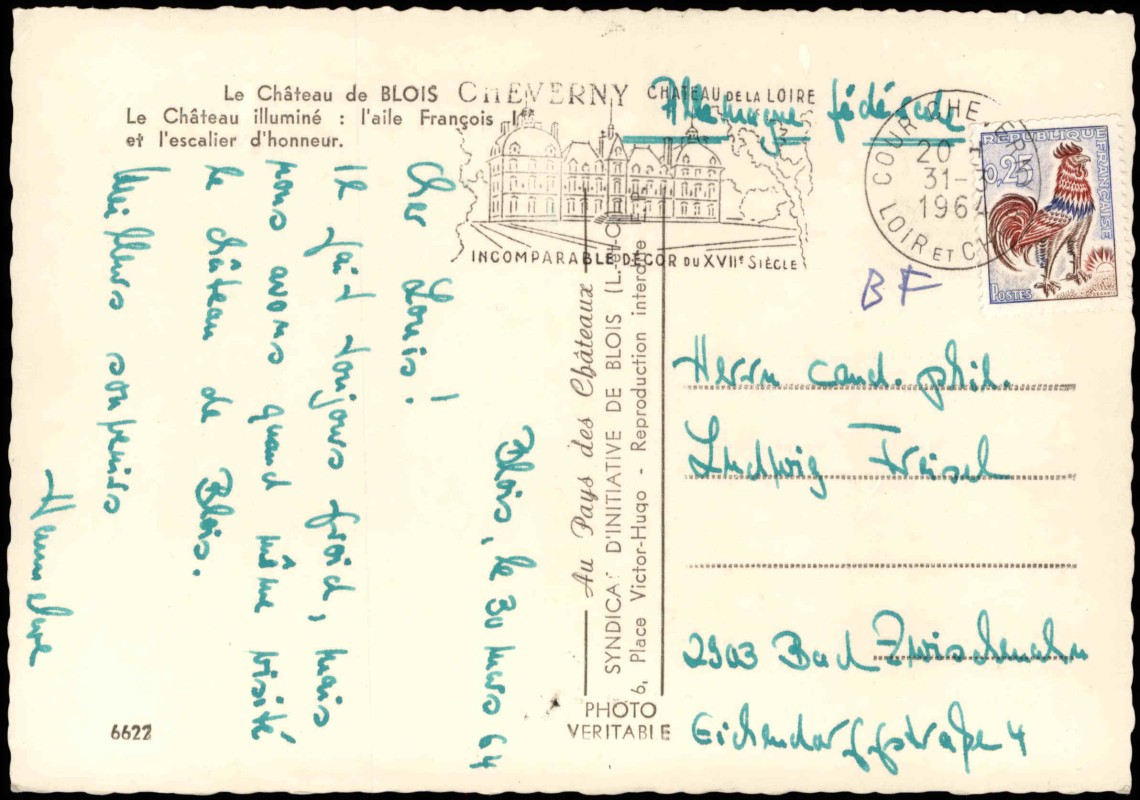 Le Château de BLOIS
Le Château illuminé : l'aile François Ier
et l'escalier d'honneur.
CHEVERNY CHATEAU DE LA LOIRE
INCOMPARABLE DÉCOR DU XVIIe SIÈCLE
COUR-CHEVERNY
20
31-3
1964
LOIR ET CHER
REPUBLIQUE FRANÇAISE
0,25
POSTES
Allemagne fédérale
BF
Blois, le 30 mars 64
Cher Louis!
Il fait toujours froid, mais
nous avons quand même visité
le château de Blois.
Meilleurs souvenirs
Au Pays des Châteaux
SYNDICAT D'INITIATIVE DE BLOIS (L.-et-C.)
6, Place Victor-Hugo - Reproduction interdite
PHOTO
VERITABLE
6622
Herrn cand. phil.
Ludwig Freisel
2903 Bad Zwischenahn
Eichendorffstraße 4